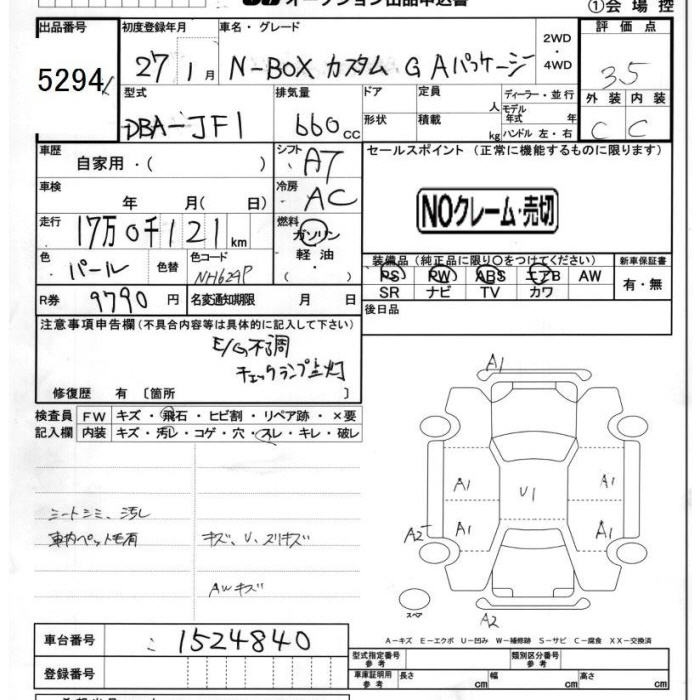 オークション出品申込書
①会場控
出品番号
5294
初度登録年月
27 1月
車名・グレード
N-BOX カスタム G Aパッケージ
2WD
・
4WD
評価点
3.5
外装 内装
C C
型式
DBA-JF1
排気量
660 cc
ドア
形状
定員 人
積載 kg
ディーラー・並行
モデル年式 年
ハンドル 左・右
車歴
自家用・( )
シフト
AT
セールスポイント (正常に機能するものに限ります)
車検
年 月( 日)
冷房
AC
NOクレーム・売切
走行
17万0千121 km
燃料
ガソリン
軽油
・
( )
色
パール
色替
色コード
NH624P
装備品 (純正品に限り○をつけてください)
PS PW ABS エアB AW
SR ナビ TV カワ
新車保証書
有・無
R券
9790 円
名変通知期限 月 日
後日品
注意事項申告欄(不具合内容等は具体的に記入して下さい)
E/G不調
チェックランプ点灯
修復歴 有 〔箇所 〕
検査員
記入欄
FW キズ・飛石・ヒビ割・リペア跡・×要
内装 キズ・汚レ・コゲ・穴・スレ・キレ・破レ
シートシミ、汚レ
車内ペット毛有
キズ、U、スリキズ
AWキズ
A1
A1
A1
U1
A1
A1
A2
A2
スペア
A-キズ E-エクボ U-凹み W-補修跡 S-サビ C-腐食 XX-交換済
車台番号
1524840
登録番号
型式指定番号
参考
類別区分番号
参考
車庫証明用
参考
長さ cm
幅 cm
高さ cm